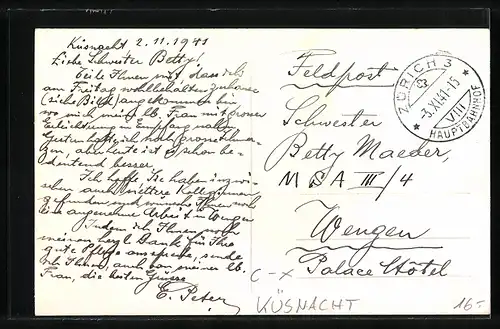 Küsnacht 2.11.1941
Liebe Schwester Betty,
Teile Ihnen mit, dass ich
am Freitag wohlbehalten zuhause
(siehe Bild) angekommen bin
wo mich meine lb. Frau mit grosser
Erleichterung in Empfang nahm.
Gestern hatte ich noch
aber heute ist es schon be-
deutend besser
Ich hoffe Sie haben inzwi-
schen auch weitere Kolleginnen
gefunden und wünsche Ihnen noch
eine angenehme Arbeit in Wengen
Indem ich Ihnen noch
meinen herzl. Dank für Ihre
gute Pflege ausspreche, sende
ich Ihnen, auch von meiner lb.
Frau, die besten Grüsse
E. Peter
Feldpost
Schwester
Betty Maeder,
M S A III/4
Wengen
Palace Hôtel
ZÜRICH 3
-3.XI.41.-15
VIII
HAUPTBAHNHOF
C-X
KÜSNACHT
16.-